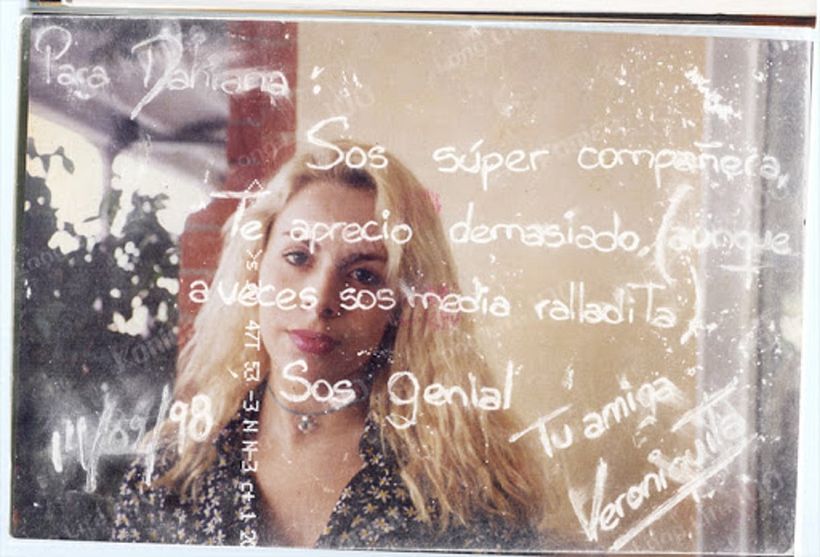 Para Dahiana:
Sos súper compañera,
Te aprecio demasiado, (aunque
a veces sos media ralladita)
Sos genial
Tu amiga
Veroniquita
14/09/98